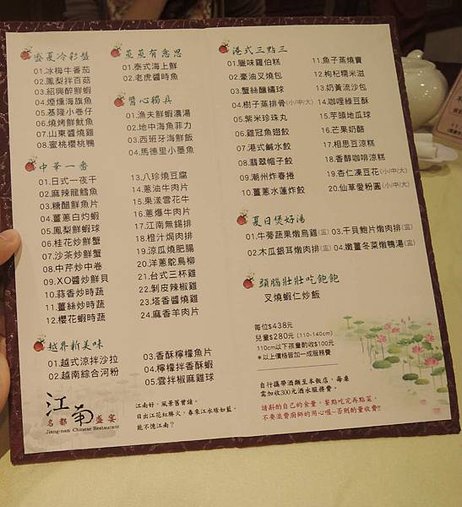 盛夏冷彩盤
01.冰梅牛番茄
02.鳳梨拌百菇
03.紹興醉鮮蝦
04.煙燻海旗魚
05.基隆小卷仔
06.燒烤鮮魷魚
07.山東醬燒雞
08.蜜桃櫻桃鴨
蒸蒸有意思
01.泰式海上鮮
02.老虎醬時魚
醬心獨具
01.漁夫鮮蝦濃湯
02.地中海魚菲力
03.西班牙海鮮飯
04.馬德里小墨魚
中華一番
01.日式一夜干
02.麻辣龍鱈魚
03.糖醋鮮魚片
04.薑蔥白灼蝦
05.鳳梨鮮蝦球
06.桂花炒鮮蟹
07.沙茶炒鮮蟹
08.中芹炒中卷
09.XO醬炒鮮貝
10.蒜香炒時蔬
11.薑絲炒時蔬
12.櫻花蝦時蔬
13.八珍燒豆腐
14.蔥油牛肉片
15.果漾雲花牛
16.蔥爆牛肉片
17.江南無錫排
18.橙汁焗肉排
19.涼瓜燒肥腸
20.洋蔥鴕鳥柳
21.台式三杯雞
22.剝皮辣椒雞
23.塔香醬燒雞
24.麻香羊肉片
越界新美味
01.越式涼拌沙拉
02.越南綜合河粉
03.香酥檸檬魚片
04.檸檬拌香酥蝦
05.雲拌椒麻雞球
港式三點三
01.臘味蘿伯糕
02.蠔油叉燒包
03.蟹絲釀繡球
04.樹子蒸排骨(小/中/大)
05.紫米珍珠丸
06.雞冠魚翅餃
07.港式鹹水餃
08.翡翠帽子餃
09.潮州炸春捲
10.薑蔥水蓮炸餃
11.魚子蒸燒賣
12.枸杞糯米滋
13.奶黃流沙包
14.咖哩綠豆酥
15.芋頭地瓜球
16.芒果奶酪
17.相思豆涼糕
18.香醇咖啡涼糕
19.杏仁凍豆花(小/中/大)
20.仙草愛粉圓(小/中/大)
夏日煲好湯
01.牛蒡蔬果燉烏雞(盅)
02.木瓜銀耳燉肉排(盅)
03.干貝鮑片燉肉排(盅)
04.嫩薑冬菜燉鴨湯(盅)
頭腦壯壯吃飽飽
叉燒蝦仁炒飯
每位$438元
兒童$280元(110-140cm)
110cm以下孩童酌收$100元
*以上價格皆加一成服務費
自行攜帶酒類至本飯店,每桌
需加收300元酒水服務費。
請斟酌自己的食量,等點吃完再點菜,
不要浪費廚師的用心喔~否則酌量收費!!
江南
名都盛宴
Jiang-nan Chinese Restaurant
江南好,風景舊曾諳。
日出江花紅勝火,春來江水綠如藍,
能不憶江南?